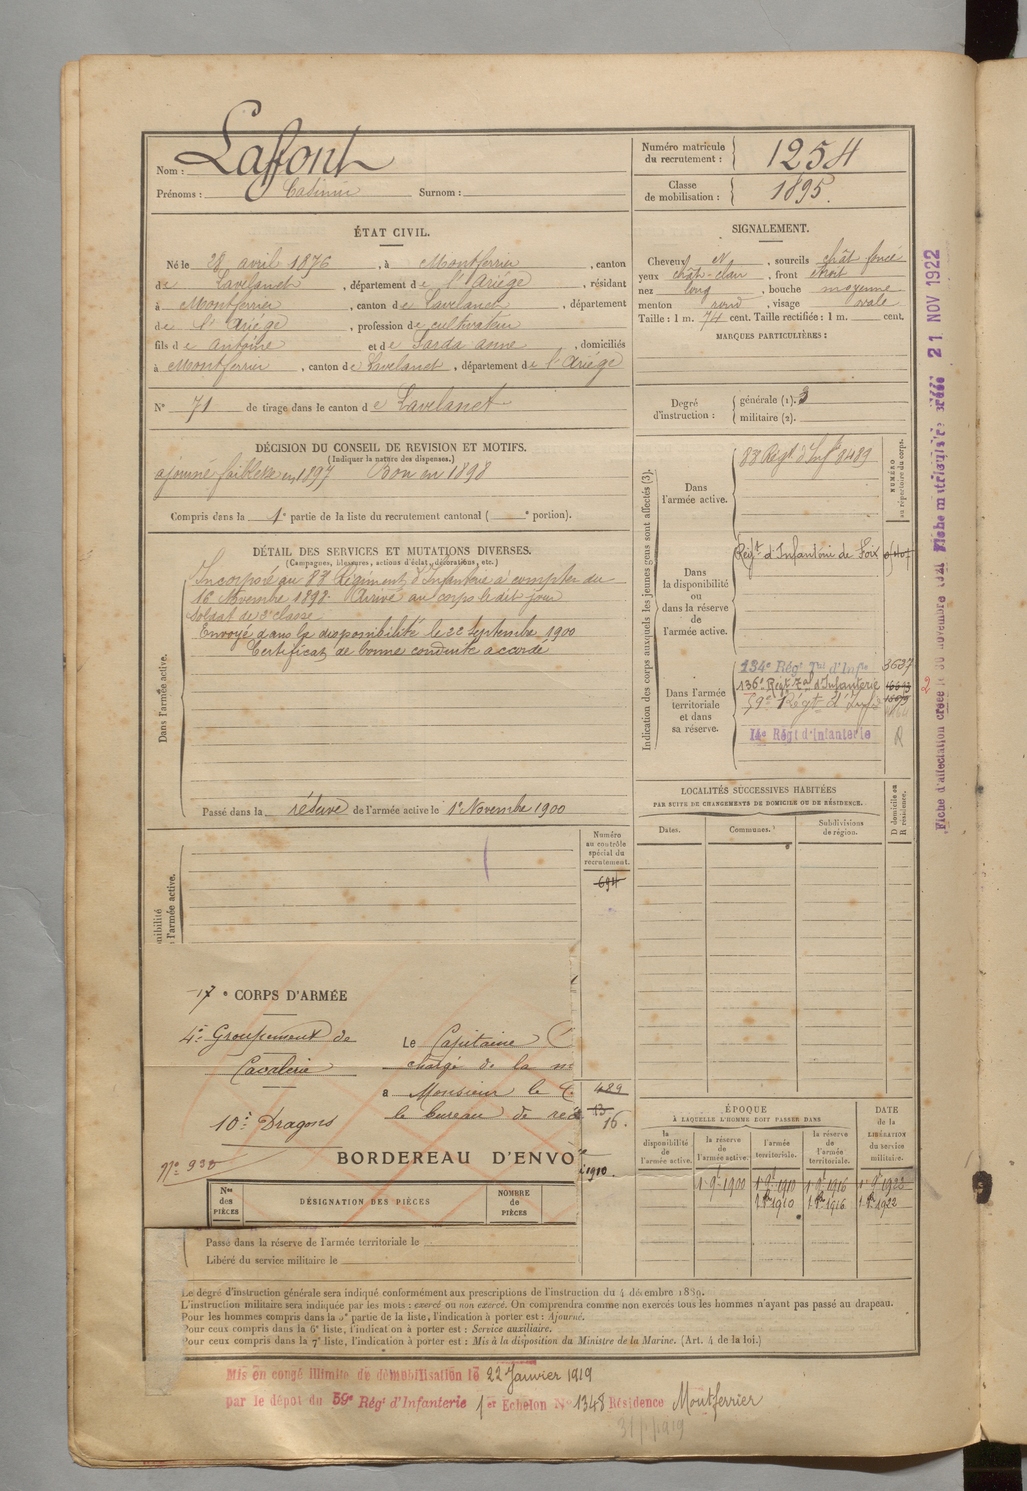 Nom : Laffont
Prénoms : Casimir Surnom :
Numéro matricule du recrutement : 1254
Classe de mobilisation : 1895.
ÉTAT CIVIL.
Né le 28 avril 1876, à Montferrier, canton
de Lavelanet, département de l'Ariége, résidant
à Montferrier, canton de Lavelanet, département
de l'Ariége, profession de cultivateur
fils de Antoine et de Sarda anne, domiciliés
à Montferrier, canton de Lavelanet, département de l'Ariége
N° 71 de tirage dans le canton de Lavelanet
SIGNALEMENT.
Cheveux N, sourcils chât foncé
yeux chât-clair, front étroit
nez long, bouche moyenne
menton rond, visage ovale
Taille : 1 m. 74 cent. Taille rectifiée : 1 m. cent.
MARQUES PARTICULIÈRES :
Degré d'instruction : générale (1). 3
militaire (2).
DÉCISION DU CONSEIL DE REVISION ET MOTIFS.
(Indiquer la nature des dispenses.)
ajourné faiblesse en 1897 Bon en 1898
Compris dans la 1e partie de la liste du recrutement cantonal ( e portion).
DÉTAIL DES SERVICES ET MUTATIONS DIVERSES.
(Campagnes, blessures, actions d'éclat, décorations, etc.)
Dans l'armée active.
Incorporé au 88 Régiment d'Infanterie à compter du
16 Novembre 1898. Arrivé au corps le dit jour
soldat de 2e classe
Envoyé dans la disponibilité le 22 Septembre 1900
Certificat de bonne conduite accordé
Passé dans la réserve de l'armée active le 1er Novembre 1900
Indication des corps auxquels les jeunes gens sont affectés (3).
NUMÉRO au répertoire du corps.
Dans l'armée active.
88 Régt d'Infie 8489
Dans la disponibilité ou dans la réserve de l'armée active.
Régt d'Infanterie de Foix
Dans l'armée territoriale et dans sa réserve.
134e Régt Tal d'Infie 3637
136e Régt Tal d'Infanterie
59e Régt d'Infie
14e Régt d'Infanterie R
LOCALITÉS SUCCESSIVES HABITÉES
PAR SUITE DE CHANGEMENTS DE DOMICILE OU DE RÉSIDENCE.
Dates. Communes. Subdivisions de région. D domicile ou R résidence.
Numéro au contrôle spécial du recrutement.
694
l'armée active.
17e CORPS D'ARMÉE
4e Groupement de
Cavalerie
10e Dragons
N° 938
Le Capitaine
chargé de la
a Monsieur le
le bureau de
489
16.
1910.
BORDEREAU D'ENVO
Nos des PIÈCES
DÉSIGNATION DES PIÈCES
NOMBRE de PIÈCES
Passé dans la réserve de l'armée territoriale le
Libéré du service militaire le
ÉPOQUE
À LAQUELLE L'HOMME DOIT PASSER DANS
DATE de la LIBÉRATION du service militaire.
la disponibilité de l'armée active.
la réserve de l'armée active.
l'armée territoriale.
la réserve de l'armée territoriale.
1 9bre 1900 1 9bre 1910 1 9bre 1916 1 9bre 1922
1 8bre 1910 1 8bre 1916 1 8bre 1922
Le degré d'instruction générale sera indiqué conformément aux prescriptions de l'instruction du 4 décembre 1889.
L'instruction militaire sera indiquée par les mots : exercé ou non exercé. On comprendra comme non exercés tous les hommes n'ayant pas passé au drapeau.
Pour les hommes compris dans la 5e partie de la liste, l'indication à porter est : Ajourné.
Pour ceux compris dans la 6e liste, l'indication à porter est : Service auxiliaire.
Pour ceux compris dans la 7e liste, l'indication à porter est : Mis à la disposition du Ministre de la Marine. (Art. 4 de la loi.)
Mis en congé illimité de démobilisation le 22 Janvier 1919
par le dépôt du 59e Régt d'Infanterie 1er Echelon N° 1348 Résidence Montferrier
Fiche d'affectation créée le 30 novembre 1921
21 NOV 1922
2